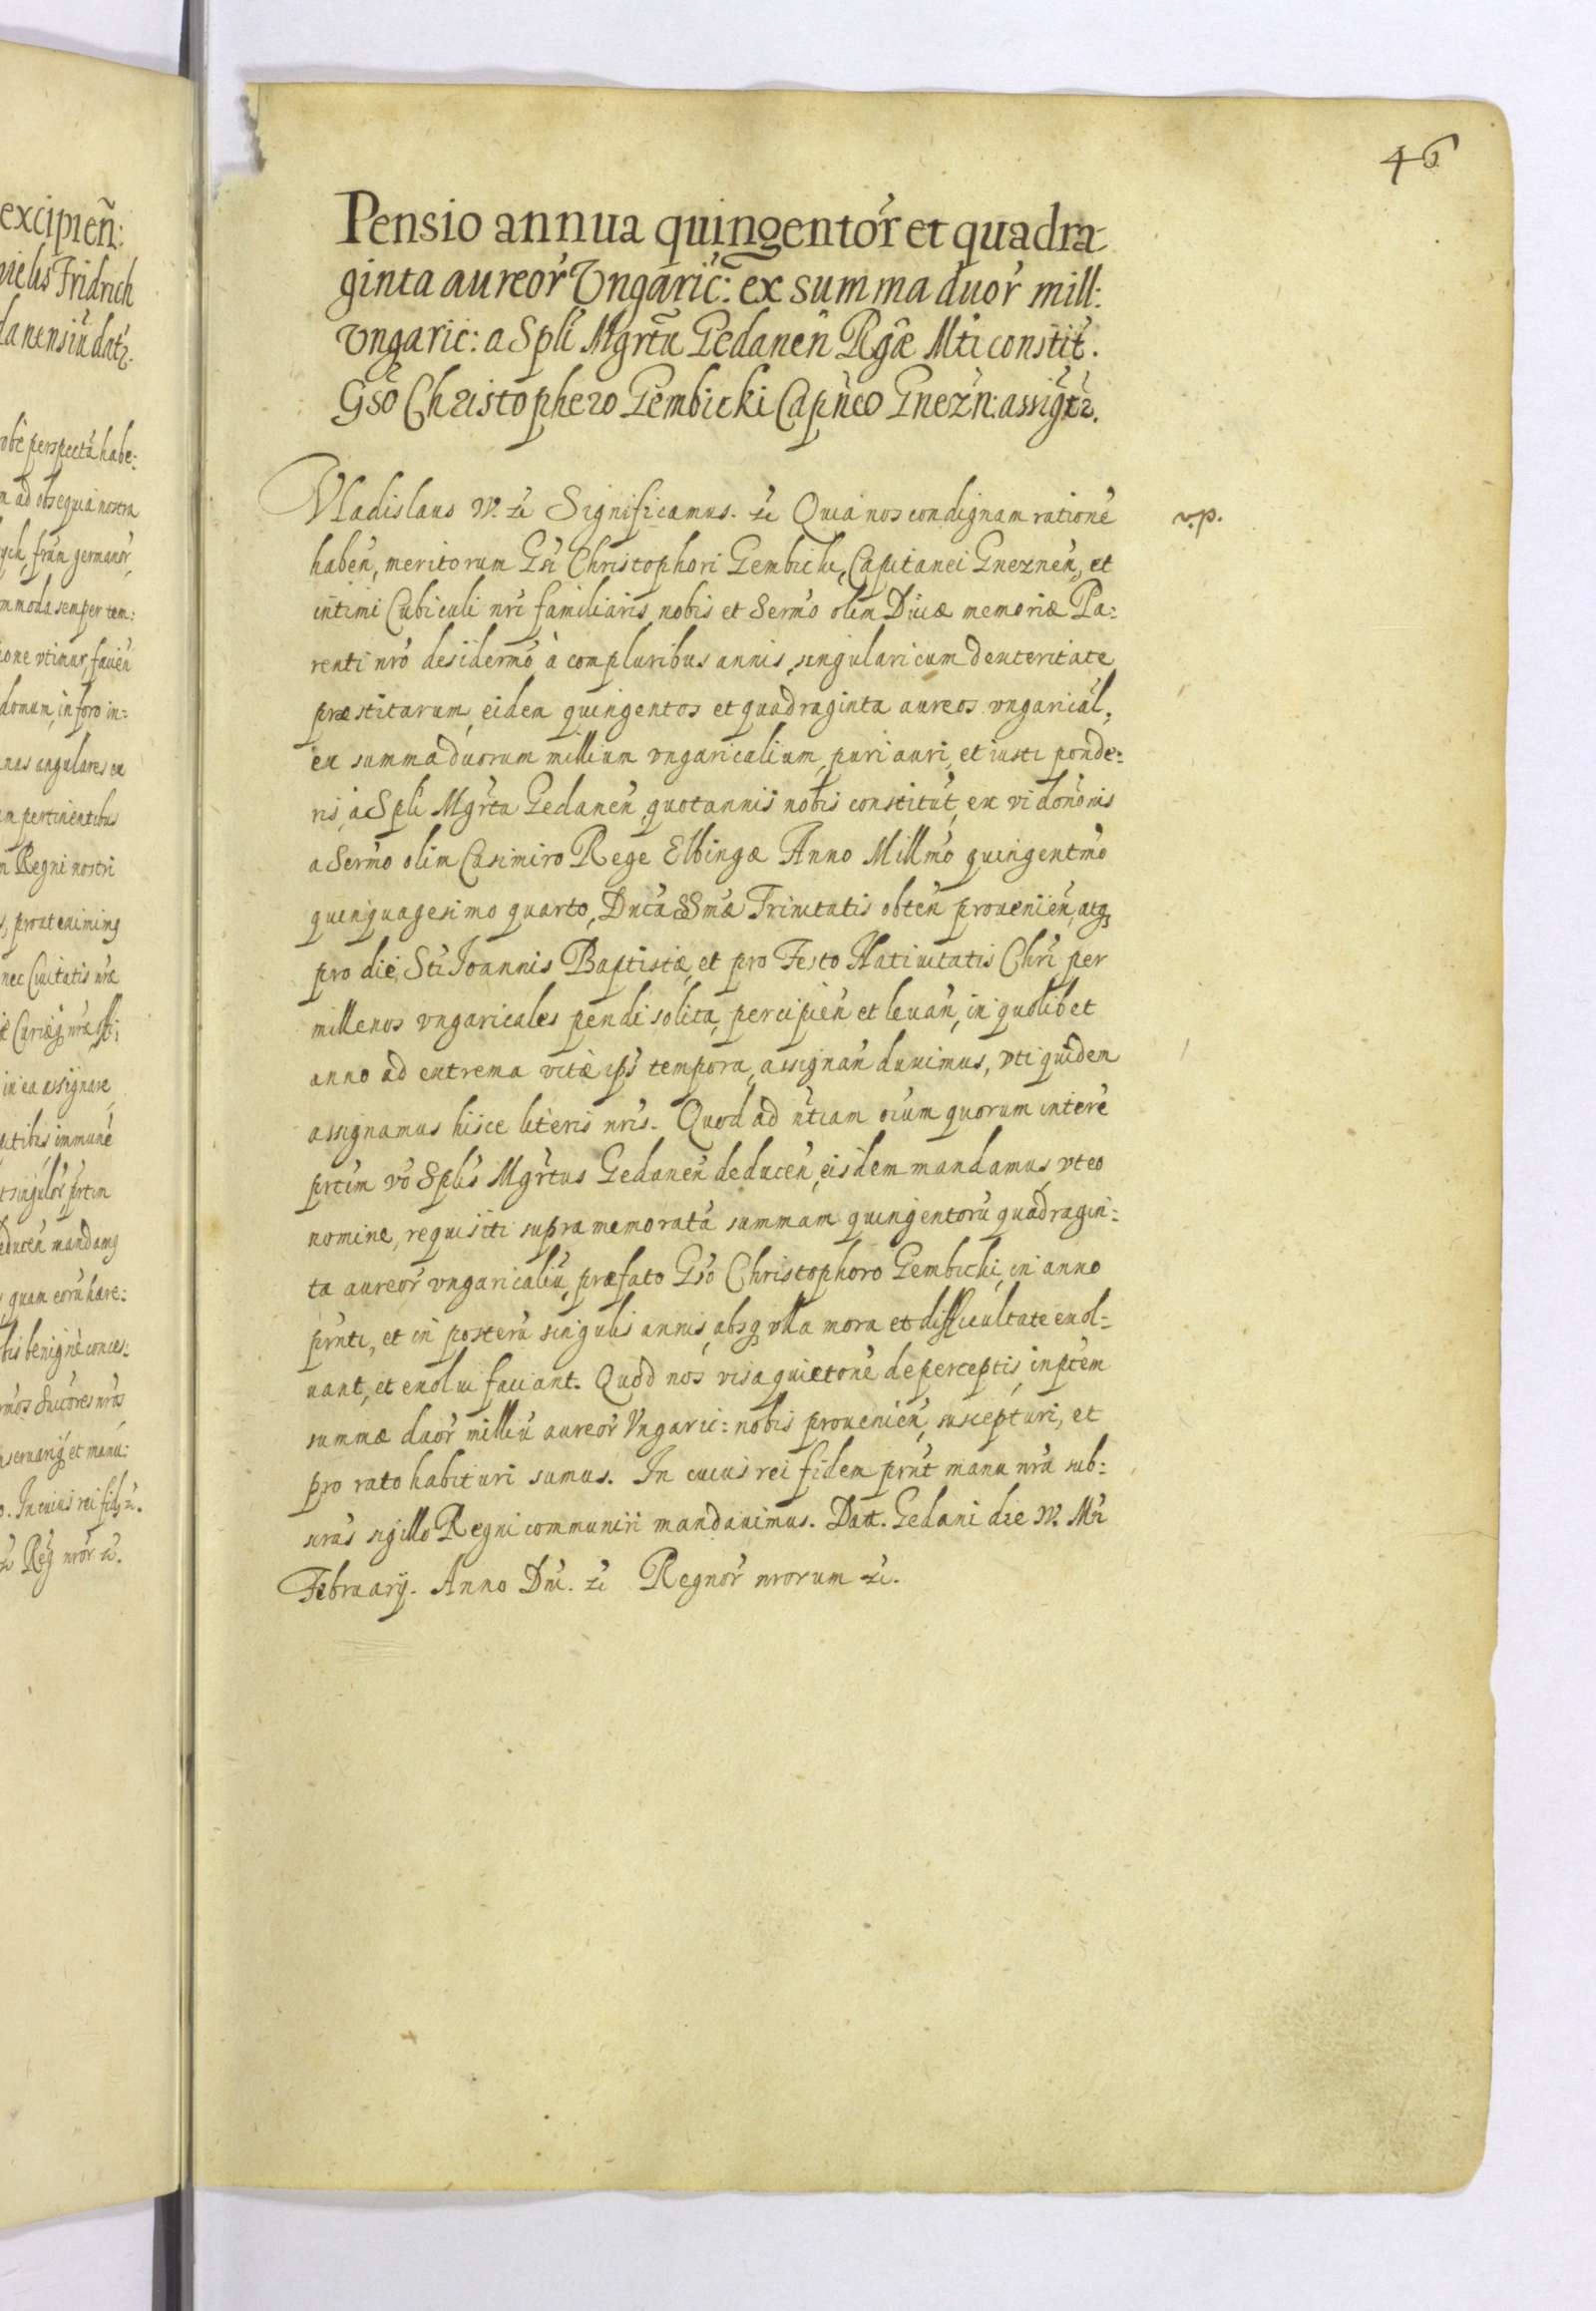 excipieñ:
Fridrich
danensiũ datr.
obè perspectã habe:
ad obsequia nostra
frũm germanor̃
mmoda semper tem:
ione vtimur, facień
domum, in foro in:
nas angulares ex
pertinentibus
Regni nostri
nec Ciuitatis nrã
in ea assignare
immunẽ
t singulor̃ prtim
educeñ mandamg
quam eorũ hære:
bis benignè conces:
Succõres nrõs
et manu:
In cuius rei fid
Reg̃ nrõr ꝛc.
46
Pensio annua quingentor̃ et quadra-
ginta aureor̃ Vngaric̃: ex summa duor̃ mill:
Vngaric: a Spli Mgrtũ Gedaneñ Rgæ Mti constit̃.
Gso Christophero Gembicki Capñeo Gnezñ: assigtr.
Vladislaus IV. ꝛc Significamus. ꝛc Quia nos condignam rationẽ
v.p.
habeñ, meritorum Gsi Christophori Gembicki, Capitanei Gnezneñ, et
intimi Cubiculi nri familiaris, nobis et Sermo olim Diuæ memoriæ Pa:
renti nro desidermo à compluribus annis, singulari cum dexteritate
præstitarum, eidem quingentos et quadraginta aureos vngarical̃,
ex summa duorum millium vngaricalium, puri auri, et iusti ponde:
ris, a Spli Mgrta Gedaneñ, quotannis nobis constitut̃, ex vi donõnis
a Sermo olim Casimiro Rege Elbingæ Anno Millmo quingentmo
quinquagesimo quarto, Dnica SSmæ Trinitatis obteñ prouenieñ, atq
pro die Sti Ioannis Baptistæ, et pro Festo Natiuitatis Chri per
millenos vngaricales pendi solita, percipieñ et leuañ, in quolibet
anno ad extrema vitæ ips tempora, assignañ duximus, vti quidem
assignamus hisce literis nris. Quod ad ntiam oium quorum interẽ
prtim vo Splis Mgrtus Gedaneñ deduceñ, eisdem mandamus, vt eo
nomine, requisiti supra memoratã summam quingentorũ quadragin:
ta aureor̃ vngaricaliũ, præfato Gso Christophoro Gembicki, in anno
prnti, et in posterũ singulis annis, absq vlla mora et difficultate exol:
uant, et exolui faciant. Quod nos visa quietonẽ de perceptis, in ptem
summæ duor̃ milliũ aureor̃ Vngaric: nobis prouenieñ, suscepturi, et
pro rato habituri sumus. In cuius rei fidem prnt manu nra sub:
scras sigillo Regni communiri mandauimus. Datt. Gedani die IV. Mr
February. Anno Dni. ꝛc Regnor̃ nrorum ꝛc.